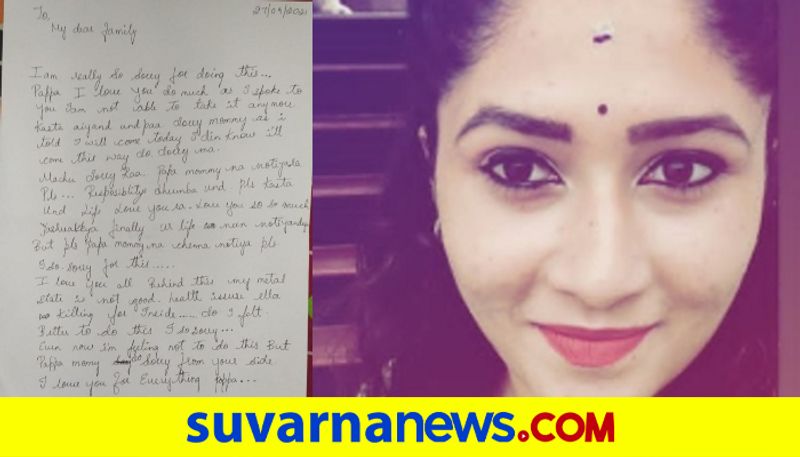 27/09/2021
To,
My dear family
I am really so sorry for doing this...
Pappa I love you so much as I spoke to
you I am not able to take it anymore
Kasta aiyand undpaa sorry mommy as i
told I will come today I din know i'll
come this way so sorry ma.
Machu sorry Papa mommy na
Pls... dhumba und. pls kasta
und life love you sa. Love you so so much
finally as life nan
But pls Papa mommy na chenna notiya pls
I so sorry for this.....
I love you all Behind this my metal
state is not good. health issuse ella
killing for Inside..... so I felt
Better to do this I so sorry...
Even now i'm feeling not to do this But
Pappa momy sorry from your side
I love you for Everything Pappa...
suvarnanews.COM